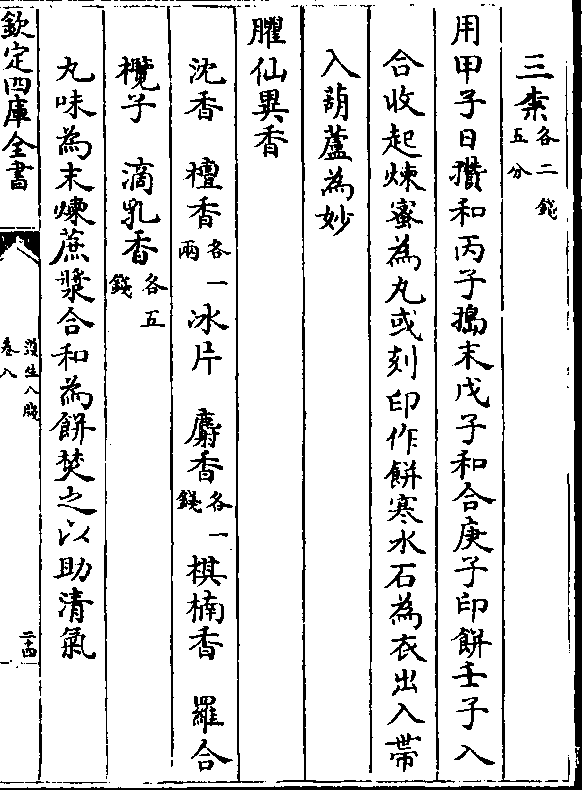 三柰各二錢五分
用甲子日攢和丙子搗末戊子和合庚子印餅壬子入
合收起煉蜜為丸或刻印作餅寒水石為衣出入帶
入葫蘆為妙
臞仙異香
沈香 檀香各一兩 冰片 麝香各一錢 棋楠香 羅合
欖子 滴乳香各五錢
丸味為末煉蔗漿合和為餅焚之以助清氣
欽定四庫全書
遵生八牋
卷八
二十四